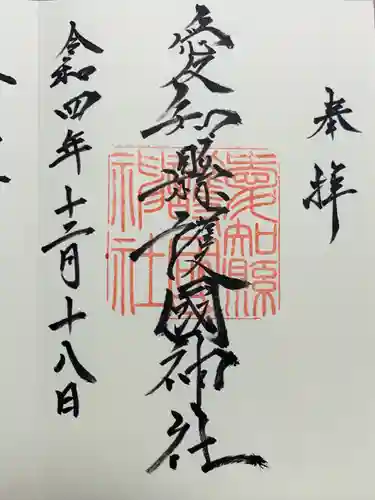 奉拝
愛知縣護國神社
愛知縣護國神社
令和四年十二月十八日